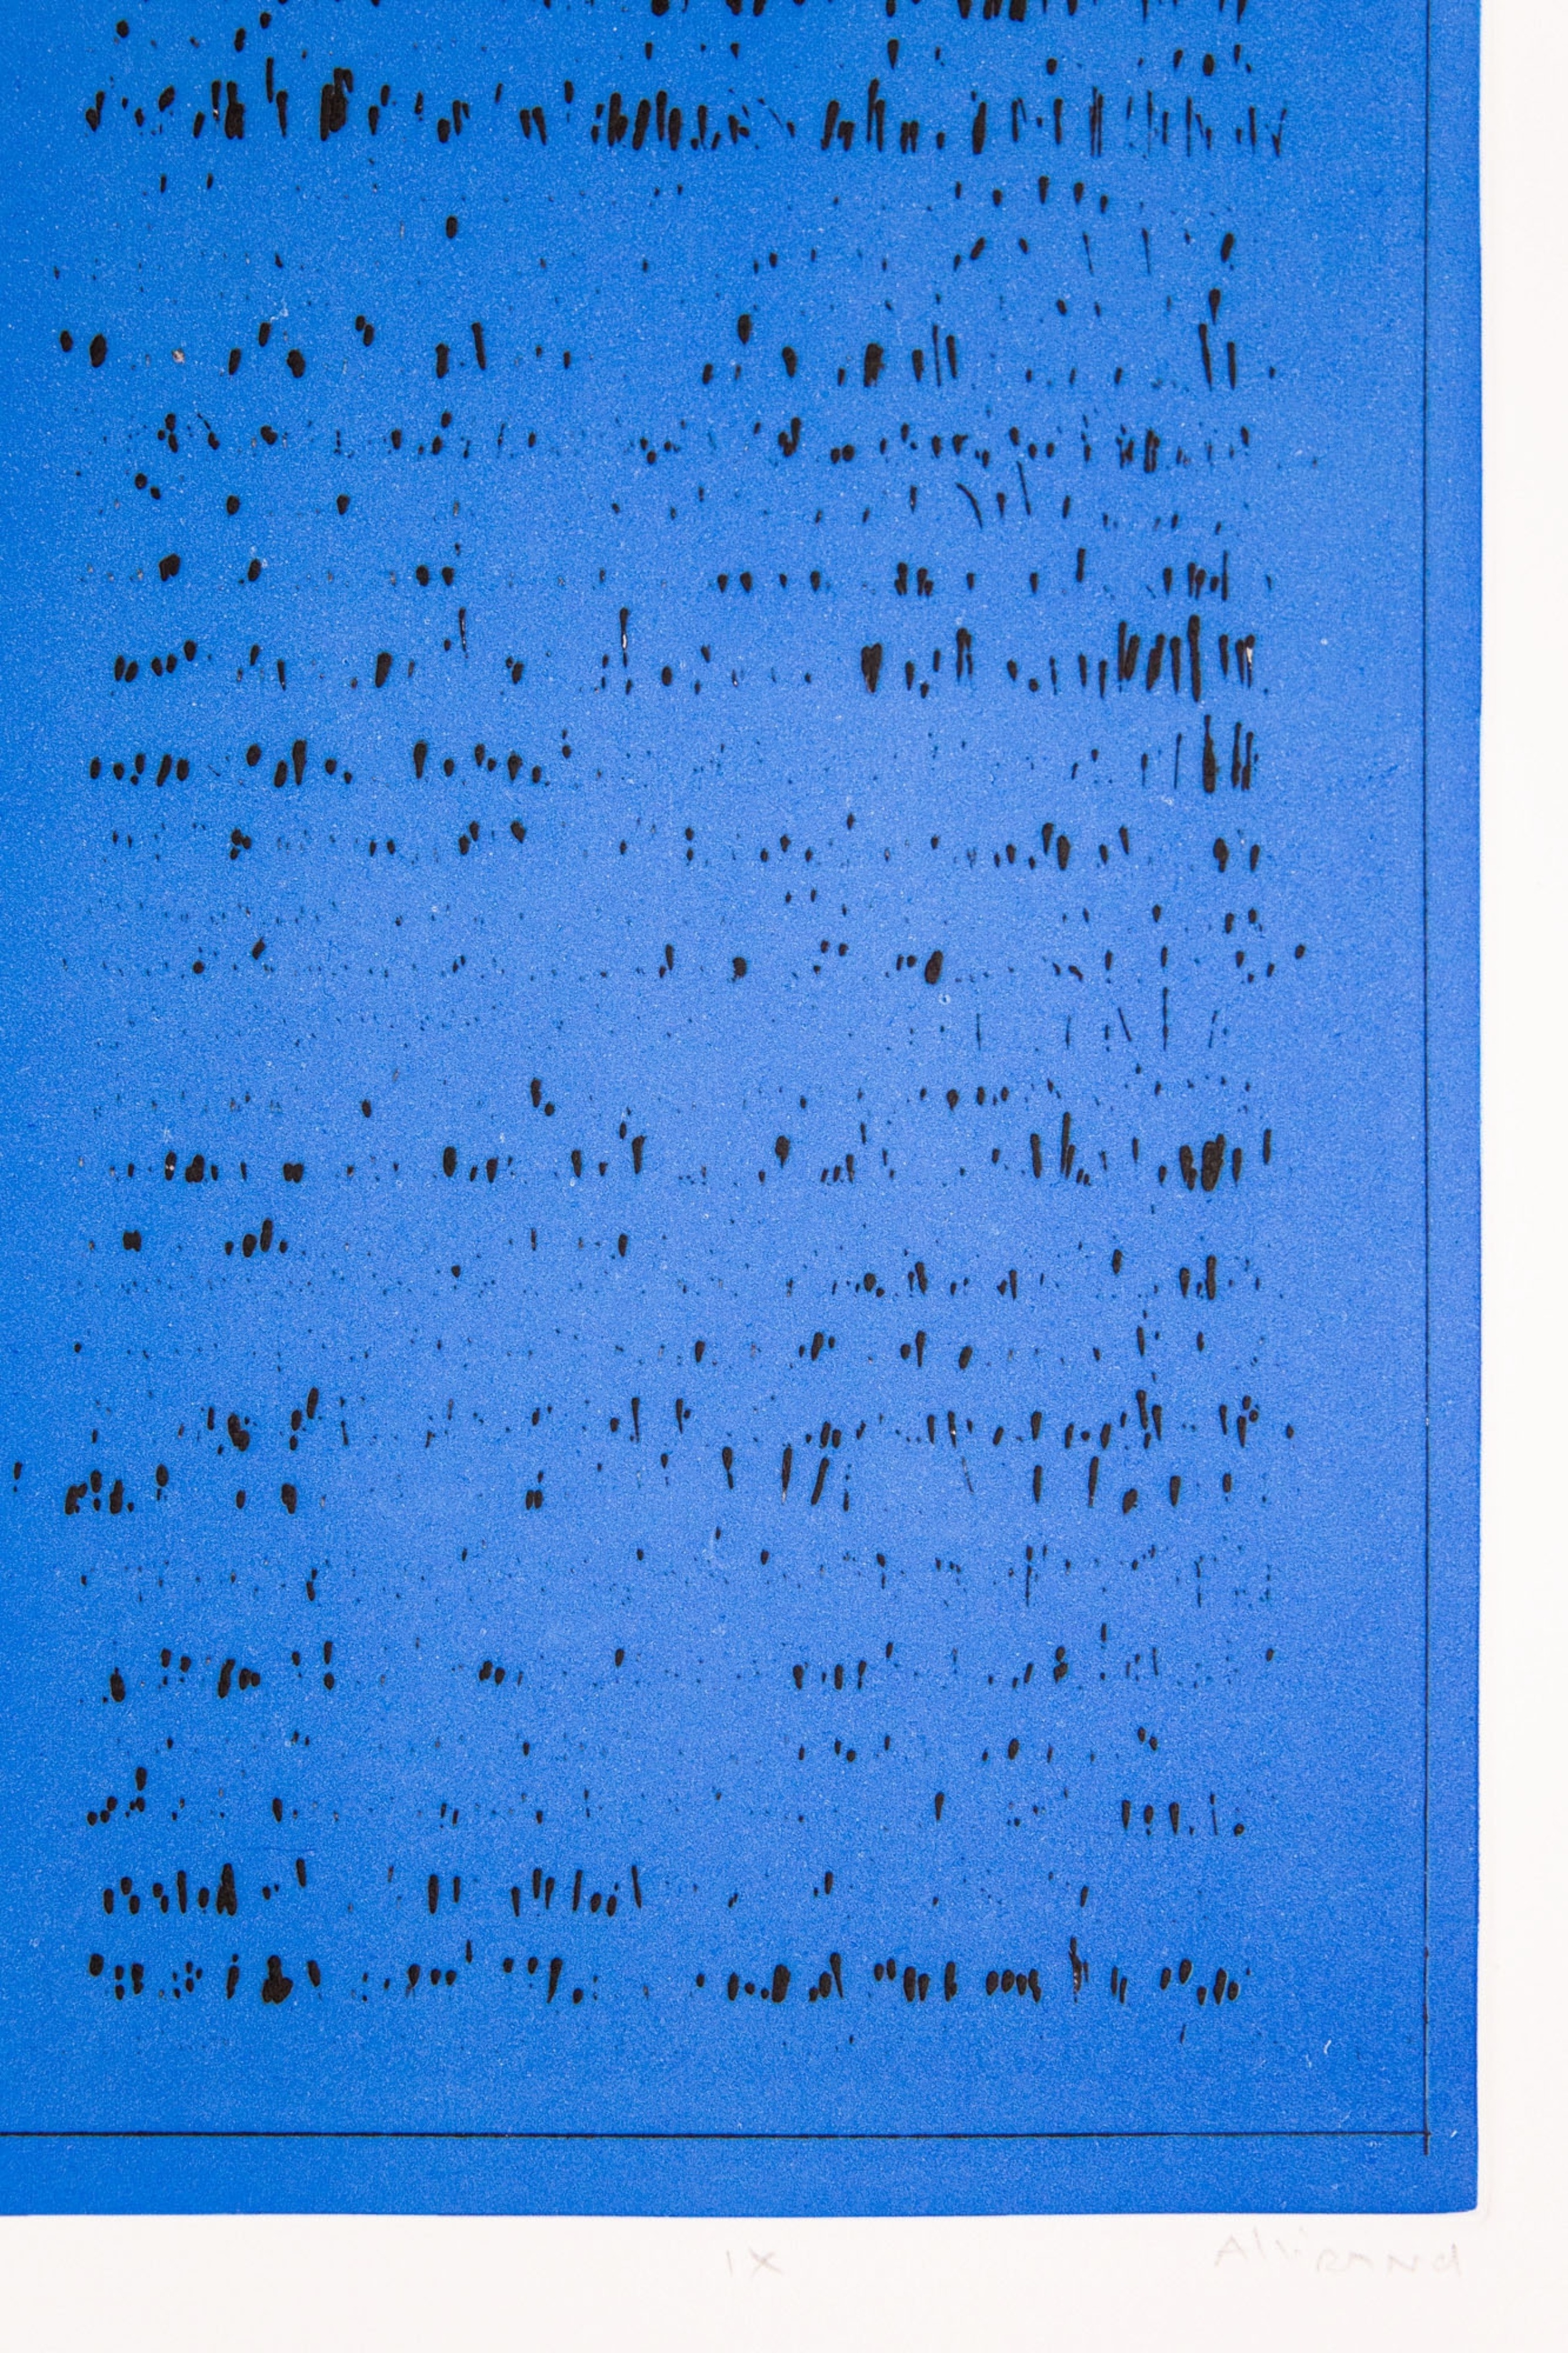 IX
Alirand